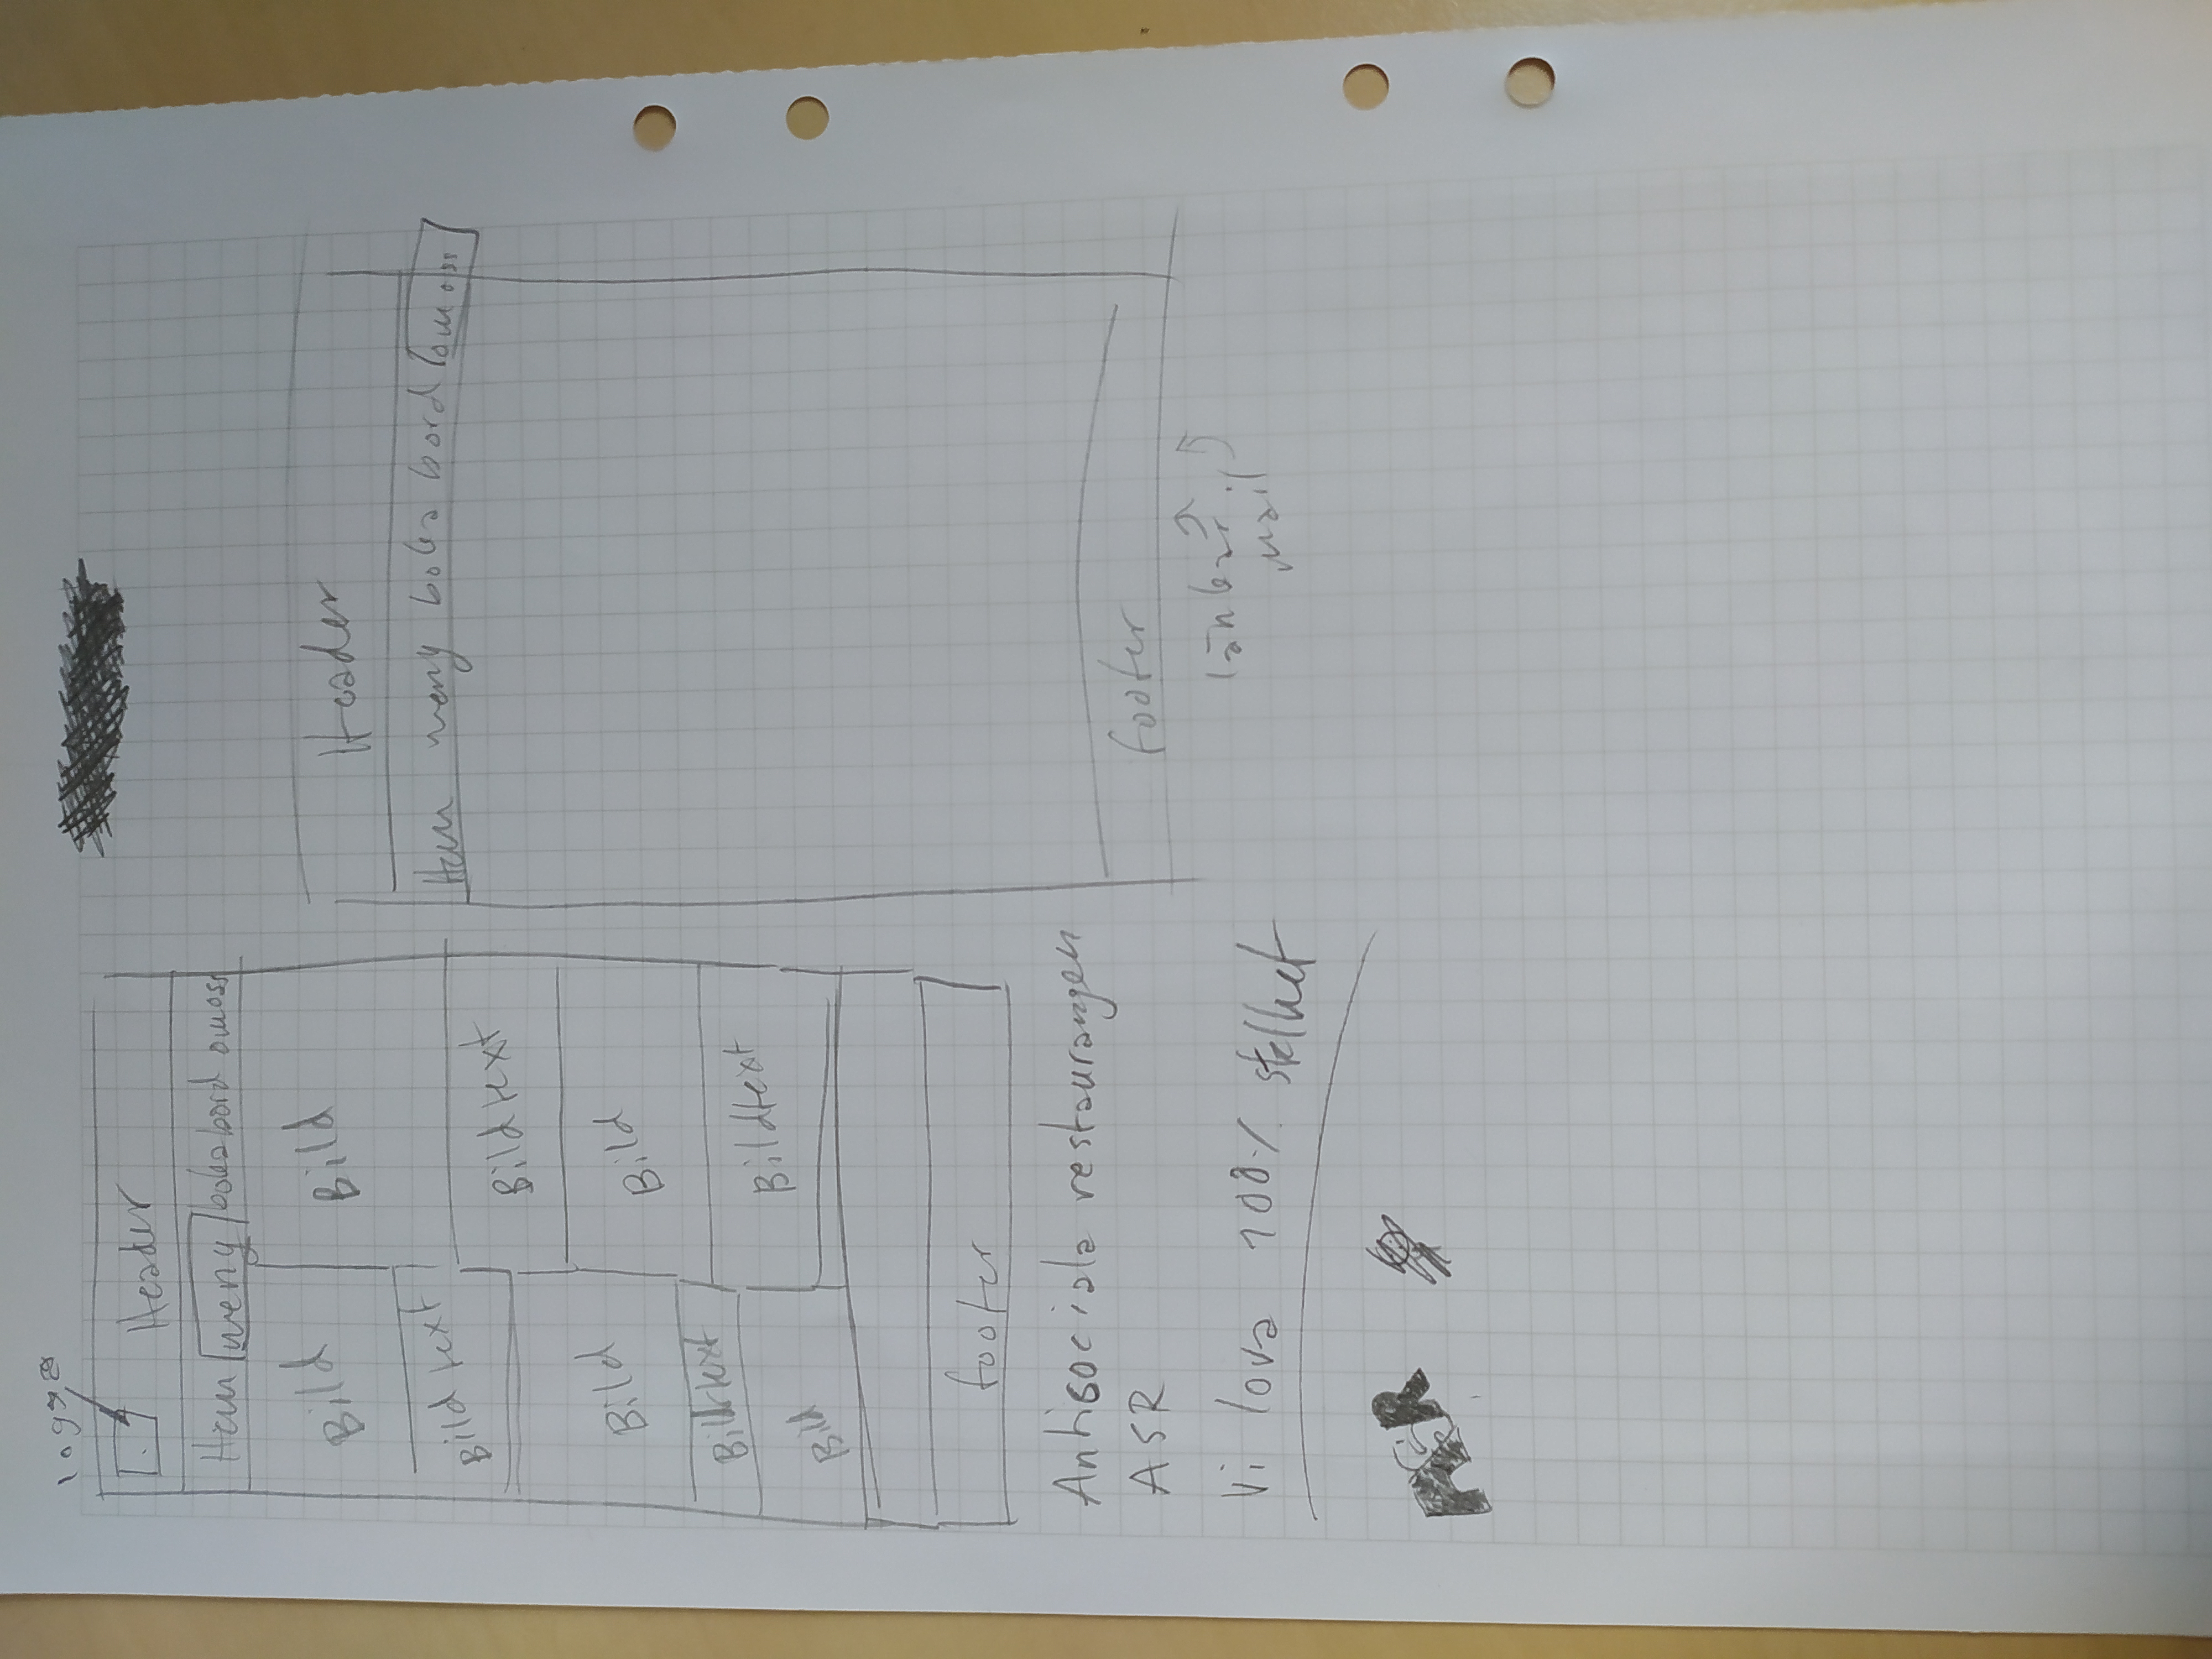 logga
Header
Hem meny boka bord om oss
Bild Bild
Bild text
Bild text
Bild Bild
Bildtext
Bild Bildtext
footer
Antisociala restaurangen
ASR
Vi lova 100% stelhet
Header
Hem meny boka bord om oss
footer
länkar
mail